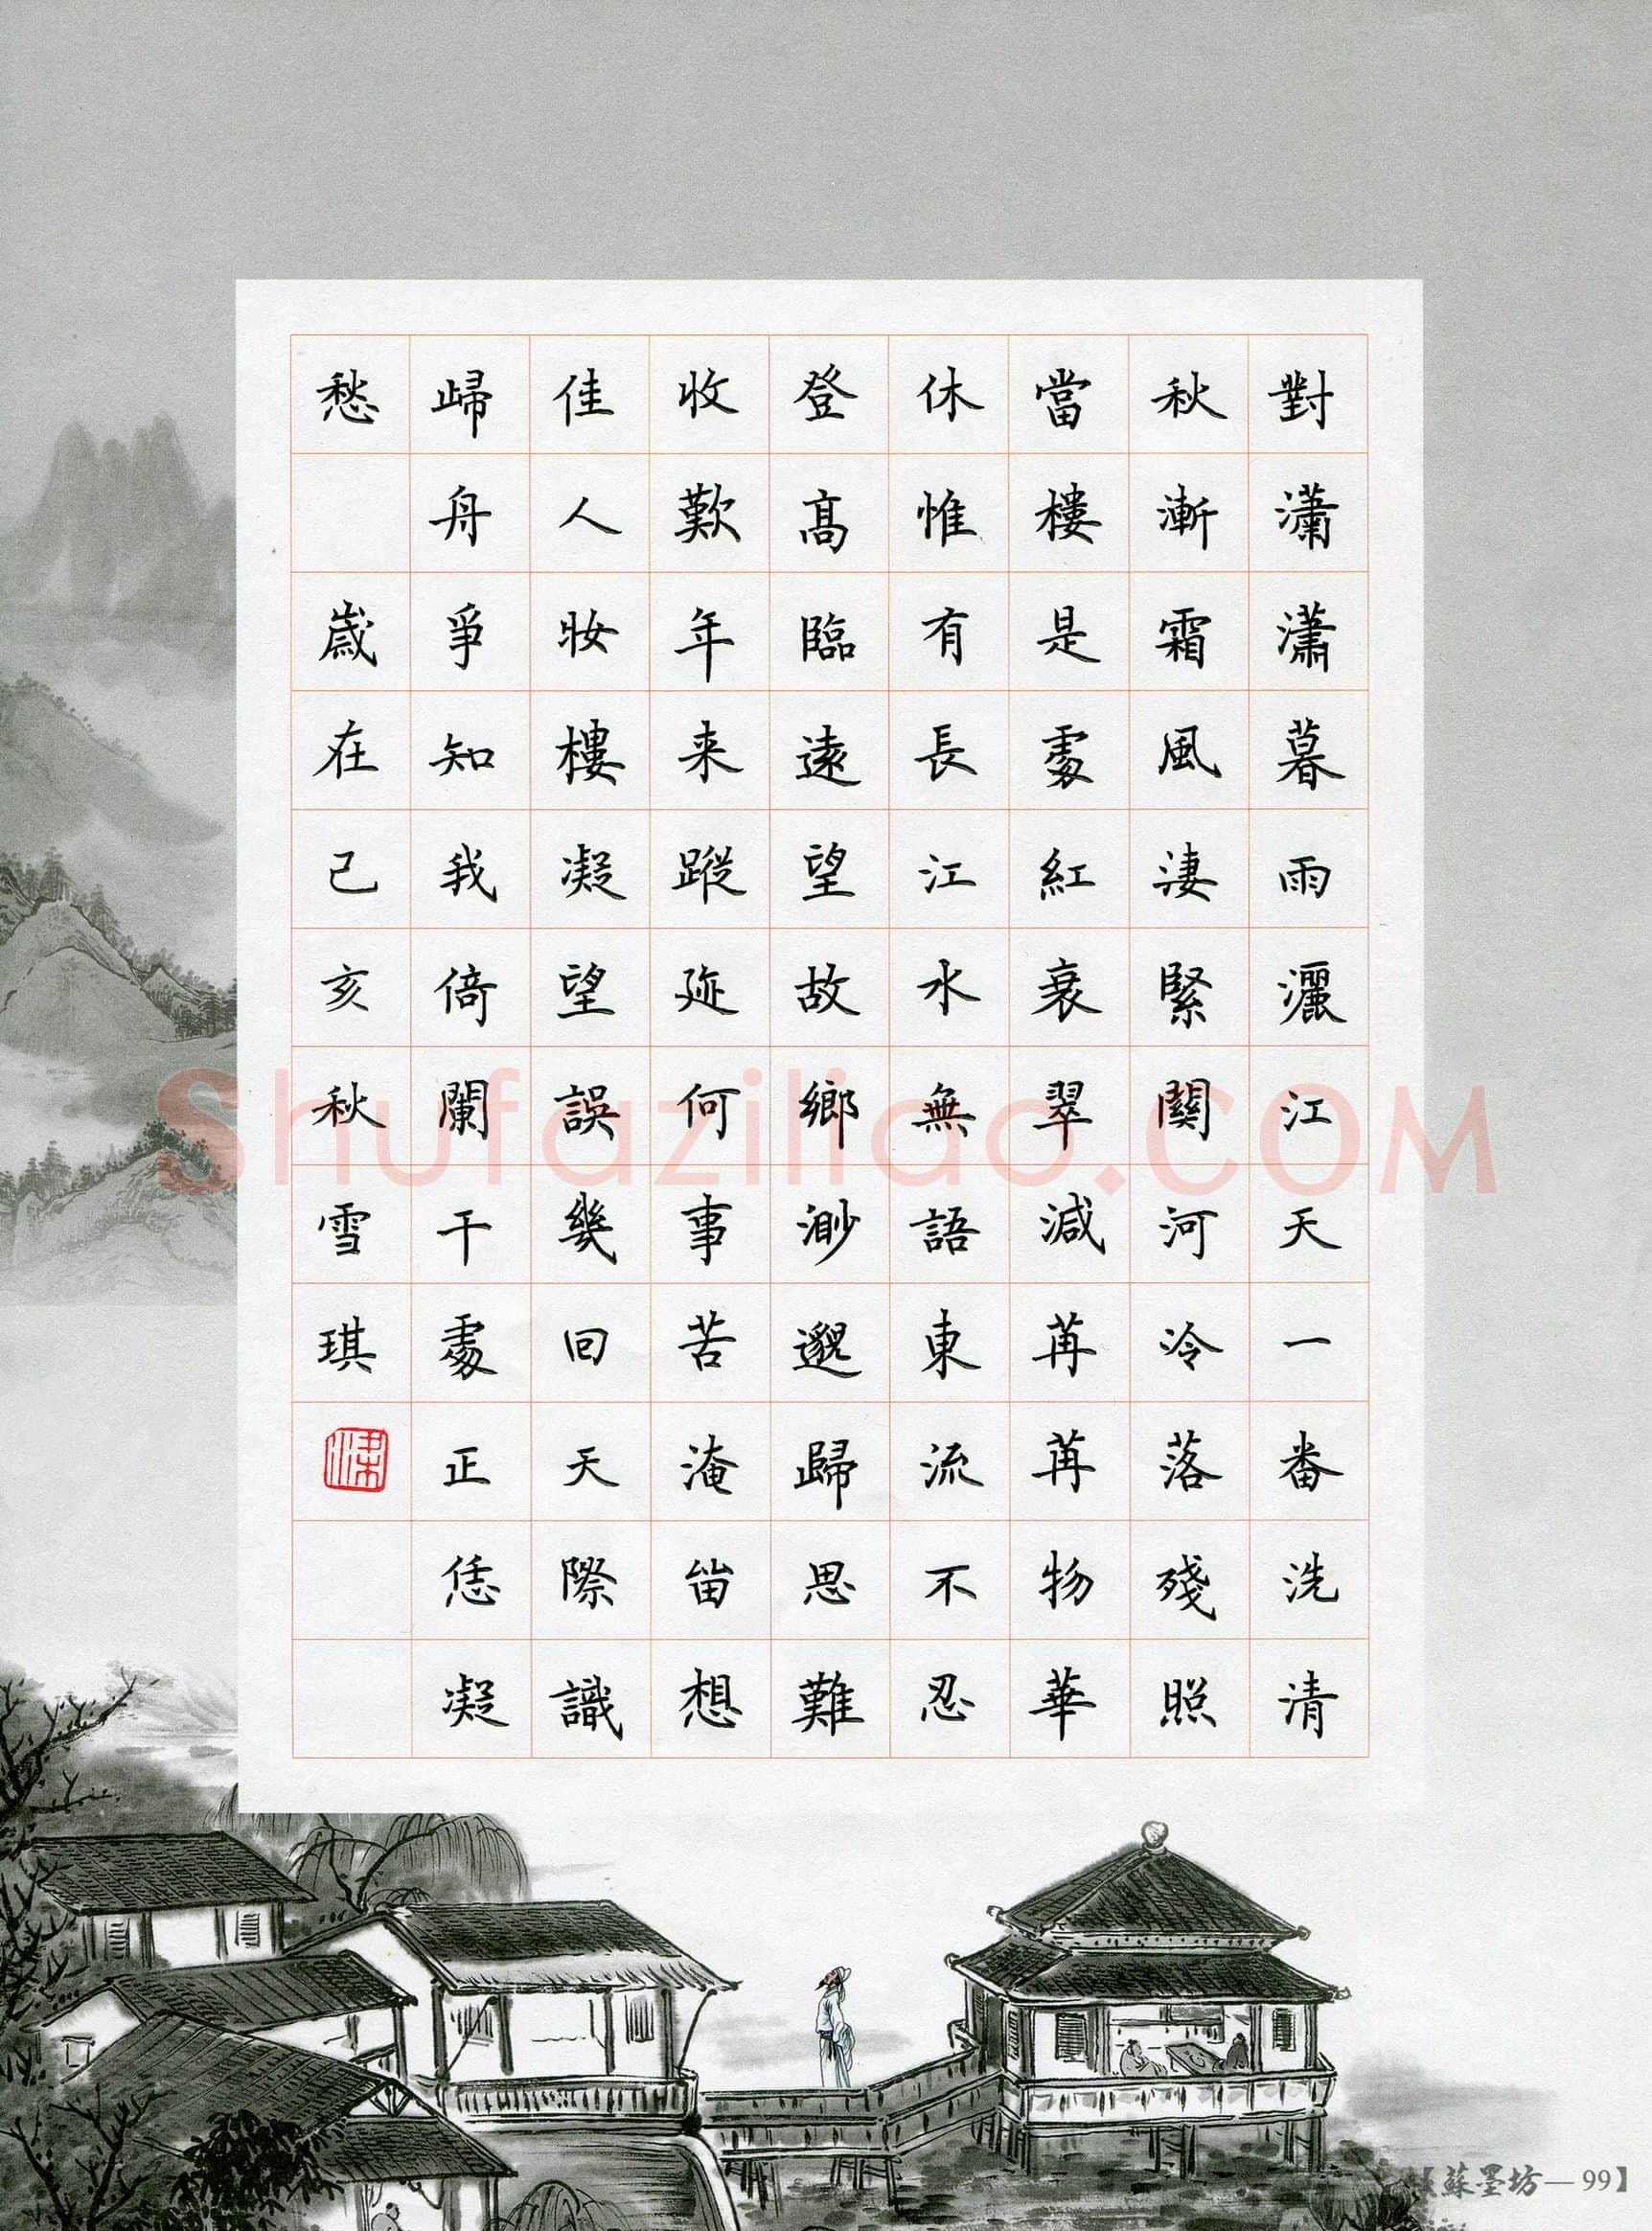 對瀟瀟暮雨灑江天一番洗清
秋漸霜風淒緊關河冷落殘照
當樓是處紅衰翠減苒苒物華
休惟有長江水無語東流不忍
登高臨遠望故鄉渺邈歸思難
收歎年来蹤迹何事苦淹留想
佳人妝樓凝望誤幾回天際識
歸舟爭知我倚闌干處正恁凝
愁 歲在己亥秋雪琪
Shufaziliao.COM
【蘇墨坊—99】